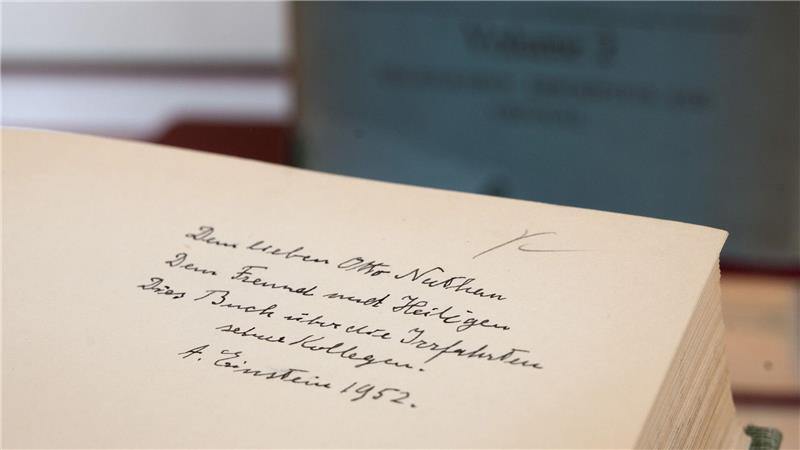 Volume 2
Dem lieben Otto Nathan
Dem Freund und Heiligen
Dies Buch über die Irrfahrten
seiner Kollegen.
A. Einstein 1952.